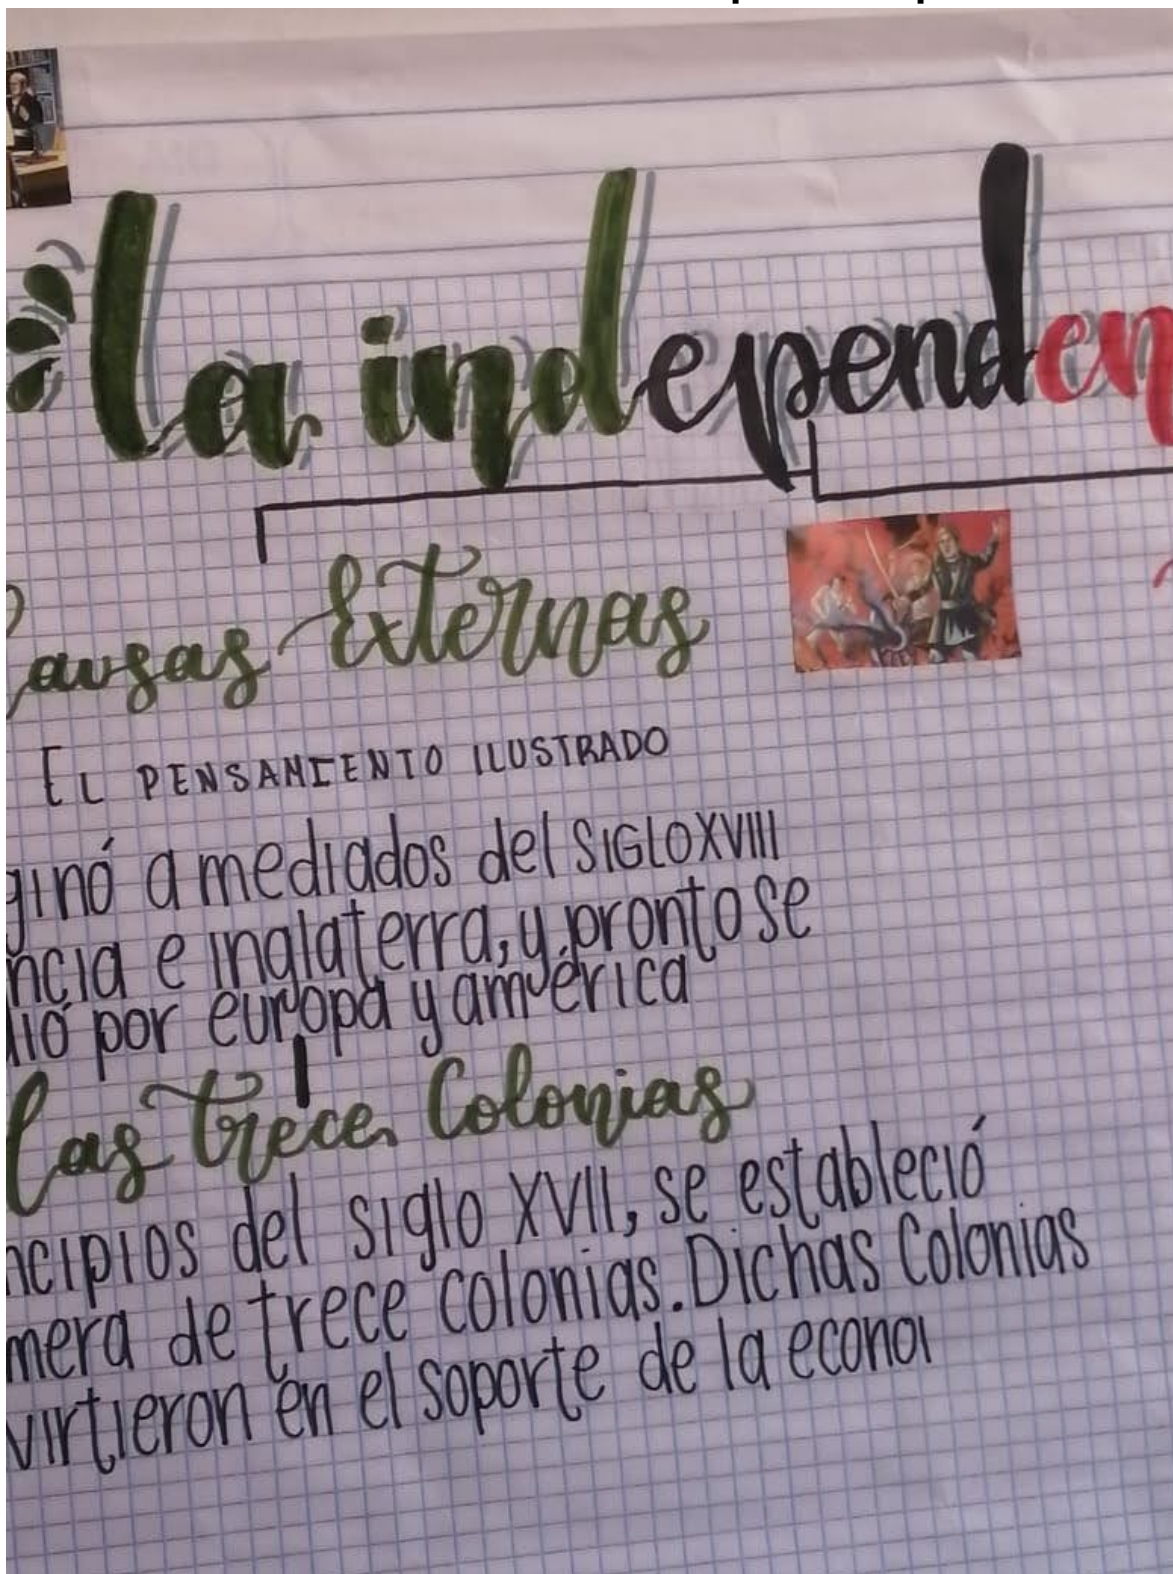 la independen
Causas Externas
EL PENSAMIENTO ILUSTRADO
ginó a mediados del SIGLO XVIII
ncia e inglaterra, y pronto se
lió por europa y américa
las trece Colonias
ncipios del siglo XVII, se estableció
mera de trece colonias. Dichas Colonias
virtieron en el soporte de la econo